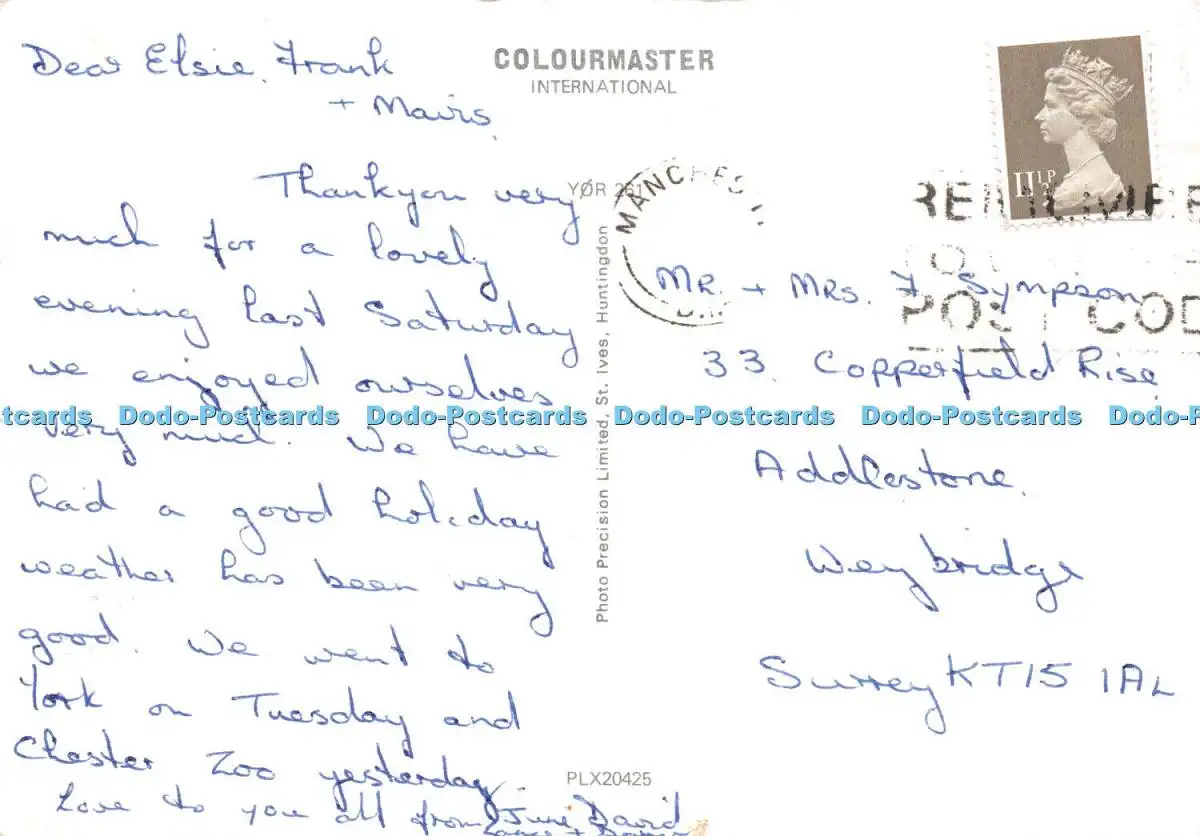 Dear Elsie, Frank
+ Mavis.
Thankyou very
much for a lovely
evening last Saturday
we enjoyed ourselves
very much. We have
had a good holiday
weather has been very
good. We went to
York on Tuesday and
Chester Zoo yesterday.
Love to you all from June David
COLOURMASTER
INTERNATIONAL
YØR 261
Photo Precision Limited, St. Ives, Huntingdon
PLX20425
11½P
MANCHES
POST COD
MR. + MRS. F. Sympson
33. Copperfield Rise
Addlestone.
Weybridge
Surrey KT15 1AL
tcards Dodo-Postcards Dodo-Postcards Dodo-Postcards Dodo-Postcards Dodo-P